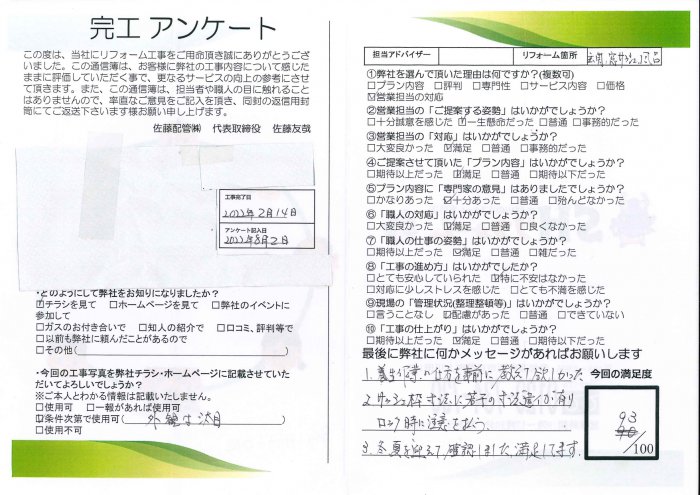 完工 アンケート
この度は、当社にリフォーム工事をご用命頂き誠にありがとうござ
いました。この通信簿は、お客様に弊社の工事内容について感じた
ままに評価していただく事で、更なるサービスの向上の参考にさせ
て頂きます。また、この通信簿は、担当者や職人の目に触れること
はありませんので、率直なご意見をご記入を頂き、同封の返信用封
筒にてご返送下さいます様お願い申し上げます。
佐藤配管㈱ 代表取締役 佐藤友哉
工事完了日
2022年2月14日
アンケート記入日
2022年8月2日
・どのようにして弊社をお知りになりましたか?
☑チラシを見て □ホームページを見て □弊社のイベントに
参加して
□ガスのお付き合いで □知人の紹介で □口コミ、評判等で
□以前も弊社に頼んだことがあるので
□その他( )
・今回の工事写真を弊社チラシ・ホームページに記載させていた
だいてよろしいでしょうか?
※ご本人とわかる情報は記載いたしません。
□使用可 □一報があれば使用可
☑条件次第で使用可( 外観は汰目 )
□使用不可
担当アドバイザー
リフォーム箇所
①弊社を選んで頂いた理由は何ですか?(複数可)
□プラン内容 □評判 □専門性 □サービス内容 □価格
☑営業担当の対応
②営業担当の「ご提案する姿勢」はいかがでしょうか?
□十分誠意を感じた ☑一生懸命だった □普通 □事務的だった
③営業担当の「対応」はいかがでしょうか?
□大変良かった ☑満足 □普通 □事務的だった
④ご提案させて頂いた「プラン内容」はいかがでしょうか?
□期待以上だった ☑満足 □普通 □期待以下だった
⑤プラン内容に「専門家の意見」はありましたでしょうか?
□かなりあった ☑十分あった □普通 □殆んどなかった
⑥「職人の対応」はいかがでしょうか?
□大変良かった ☑満足 □普通 □良くなかった
⑦「職人の仕事の姿勢」はいかがでしょうか?
□期待以上だった ☑満足 □普通 □雑だった
⑧「工事の進め方」はいかがでしたか?
□とても安心していられた ☑特に不安はなかった
□対応に少しストレスを感じた □とても不満を感じた
⑨現場の「管理状況(整理整頓等)」はいかがでしょうか?
□言うことなし ☑配慮があった □普通 □できていない
⑩「工事の仕上がり」はいかがでしょうか?
□期待以上だった ☑満足 □普通 □期待以下だった
最後に弊社に何かメッセージがあればお願いします
1. 養生作業の仕方を事前に教えて欲しかった
2. サッシュ枠寸法に若干の寸法違いが有り
ロック時に注意を払う。
3. 冬夏を迎えて確認しました、満足してます。
今回の満足度
93
90
/100